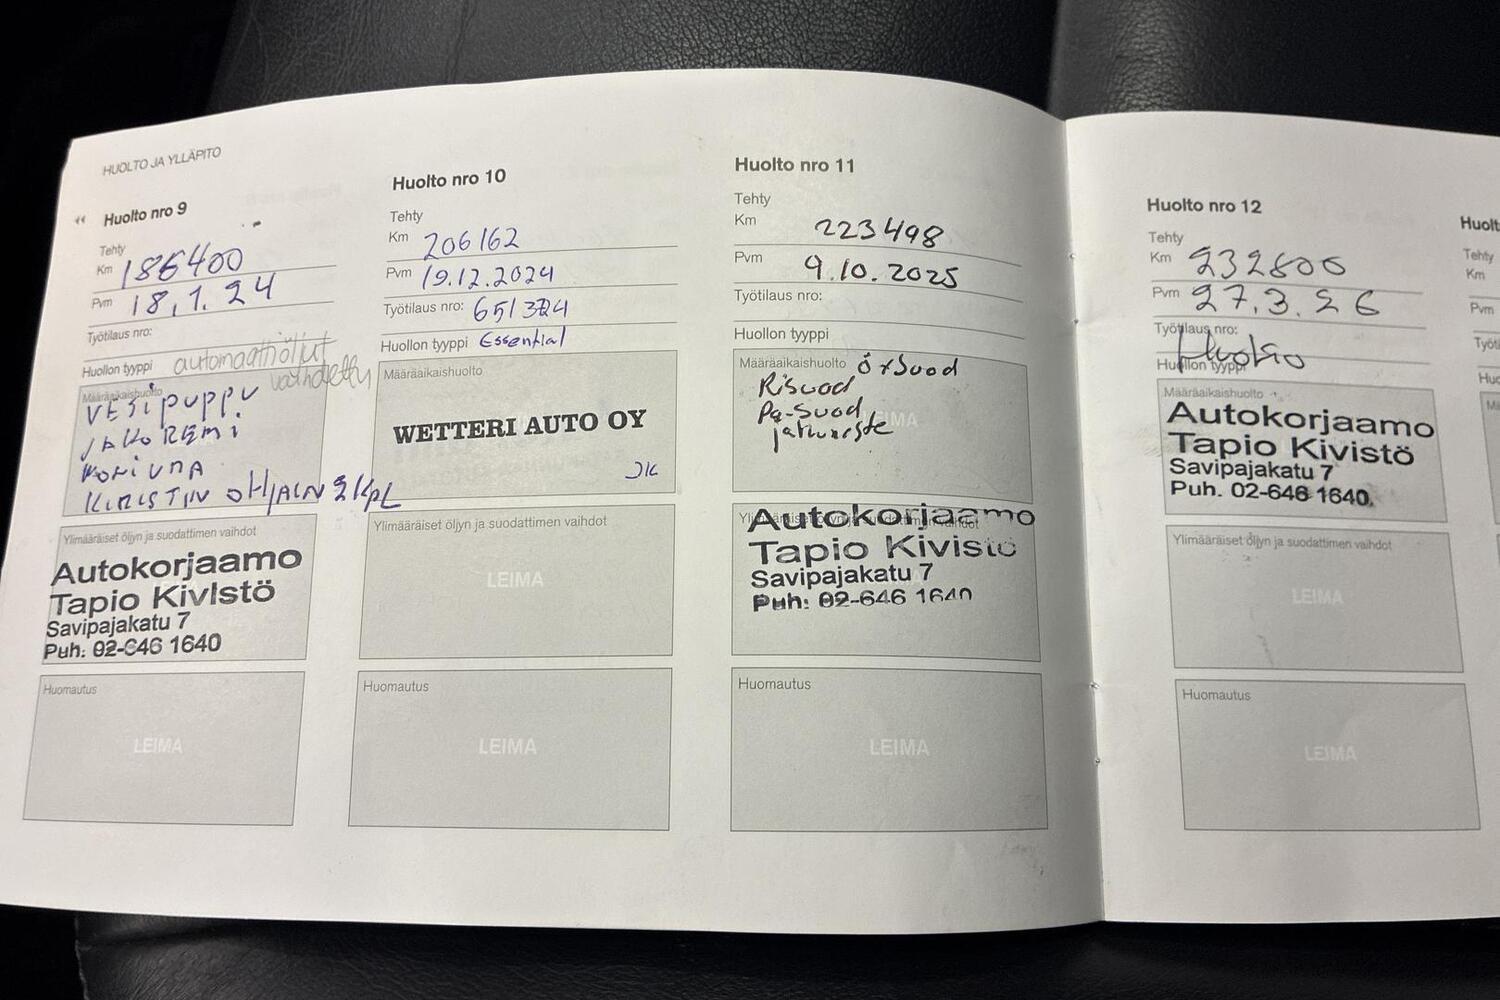 HUOLTO JA YLLÄPITO
Huolto nro 9
Tehty
Km 186400
Pvm 18.1.24
Työtilaus nro:
Huollon tyyppi automaattiöljyt
vaihdettu
Määräaikaishuolto
VESipuppu
JAKOREMi
KONiVNA
KIRISTIN OHJAIN 2KPL
Ylimääräiset öljyn ja suodattimen vaihdot
Autokorjaamo
Tapio Kivistö
Savipajakatu 7
Puh. 02-646 1640
Huomautus
LEIMA
Huolto nro 10
Tehty
Km 206162
Pvm 19.12.2024
Työtilaus nro: 651324
Huollon tyyppi Essential
Määräaikaishuolto
WETTERI AUTO OY
JK
Ylimääräiset öljyn ja suodattimen vaihdot
LEIMA
Huomautus
LEIMA
Huolto nro 11
Tehty
Km 223498
Pvm 9.10.2025
Työtilaus nro:
Huollon tyyppi
Määräaikaishuolto ö+Suod
Risuod
Pa-Suod
jarruneste
Ylimääräiset öljyn ja suodattimen vaihdot
Autokorjaamo
Tapio Kivistö
Savipajakatu 7
Puh: 02-646 1640
Huomautus
LEIMA
Huolto nro 12
Tehty
Km 232800
Pvm 27.3.26
Työtilaus nro:
Huolto
Huollon tyyppi
Määräaikaishuolto
Autokorjaamo
Tapio Kivistö
Savipajakatu 7
Puh. 02-646 1640.
Ylimääräiset öljyn ja suodattimen vaihdot
LEIMA
Huomautus
LEIMA
Tehty
Km
Pvm